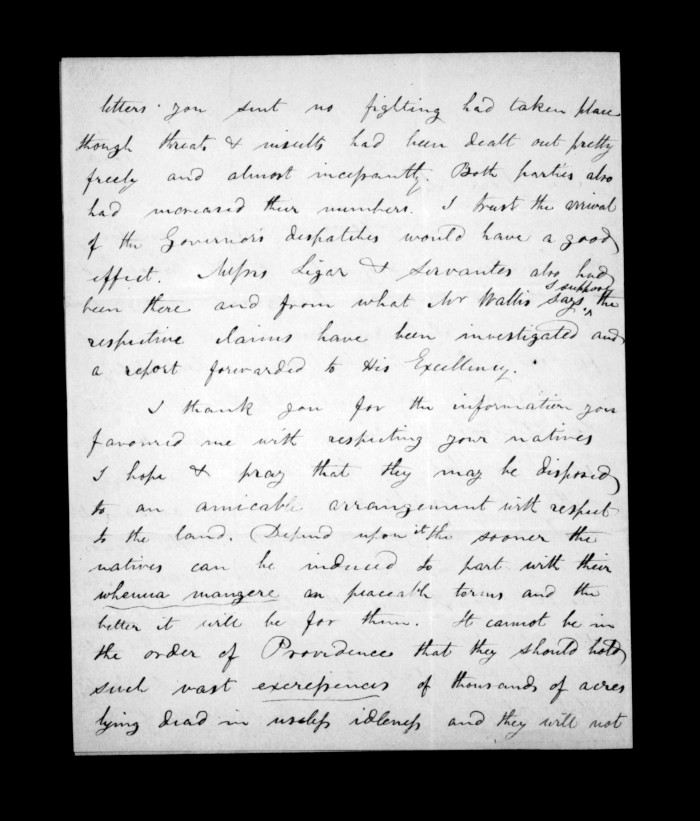 letters you sent no fighting had taken place
though threats & insults had been dealt out pretty
freely and almost incessantly. Both parties also
had increased their numbers. I trust the arrival
of the Governors despatches would have a good
effect. Messrs Ligar & Servantes also had
been there and from what Mr Wallis says, I suppose the
respective claims have been investigated and
a report forwarded to His Excellency.
I thank you for the information you
favoured me with respecting your natives
I hope & pray that they may be disposed
to an amicable arrangement with respect
to the land. Depend upon it the sooner the
natives can be induced to part with their
whenua mangere on peaceable terms and the
better it will be for them. It cannot be in
the order of Providence that they should hold
such vast excressences of thousands of acres
lying dead in useless idleness and they will not